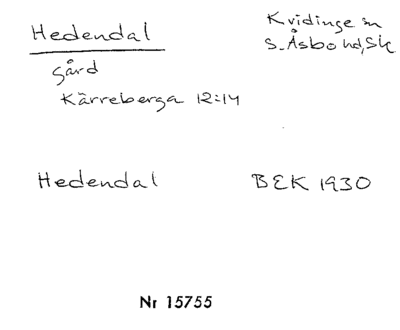 Hedendal
Kvidinge sn
S. Åsbo hd, Sk
gård
Kärreberga 12:14
Hedendal BEK 1930
Nr 15755